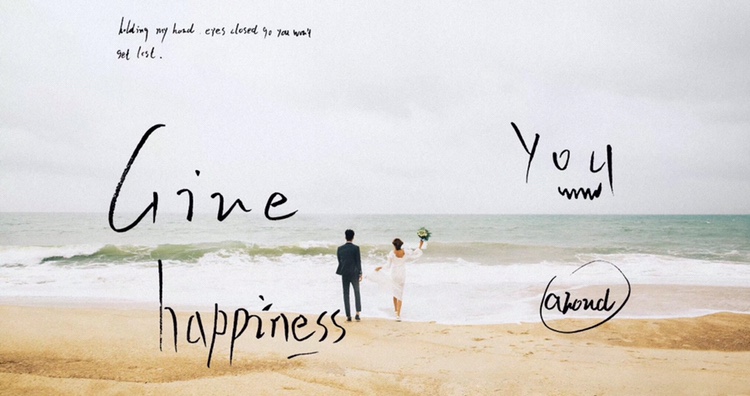 holding my hand eyes closed go you won't
get lost.
Give You
happiness around